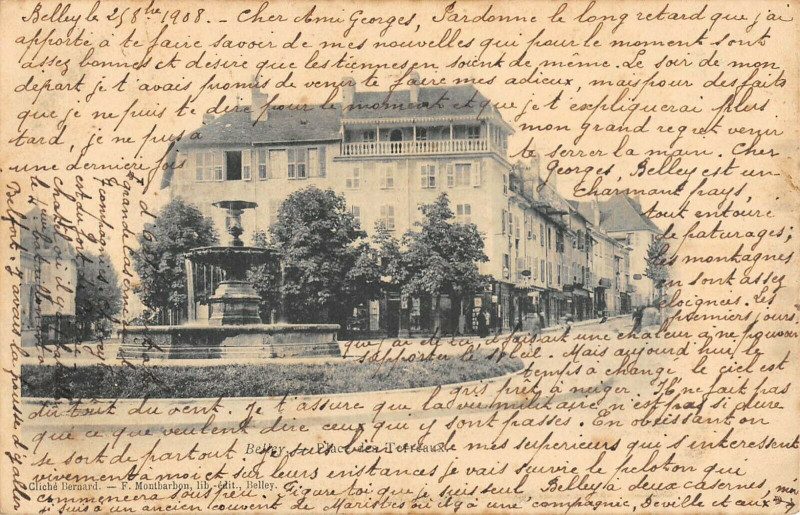 Belley le 25 8bre 1908. - Cher Ami Georges, Pardonne le long retard que j'ai
apporté a te faire savoir de mes nouvelles qui pour le moment sont
assez bonnes et désire que les tiennes en soient de même. Le soir de mon
depart je t'avais promis de venir te faire mes adieux, mais pour des faits
que je ne puis te dire pour le moment et que je t'expliquerai plus
tard, je ne pus a mon grand regret venir
une dernière fois te serrer la main. Cher
Georges, Belley est un
charmant pays,
tout entouré
de paturages;
les montagnes
en sont assez
eloignées. Les
premiers jours
que j'ai été ici, il faisait une chaleur a ne pouvoir
supporter le soleil. Mais aujourd'hui le
temps a changé le ciel est
gris prêt à neiger. Il ne fait pas
du tout du vent. Je t'assure que la vie militaire n'est pas si dure
que ce que veulent dire ceux qui y sont passés. En obeissant on
se sort de partout
mes superieurs qui s'interessent
vivement à moi et sur leurs instances je vais suivre le peloton qui
commencera sous peu. Figure toi que je suis seul Belley à deux casernes,
si suis a un ancien couvent de Maristes où il y a une compagnie, Deville et eaux
Belley. - Place des Terreaux.
Cliché Bernard. — F. Montbarbon, lib.-édit., Belley.
grande caserne
4 compagnies